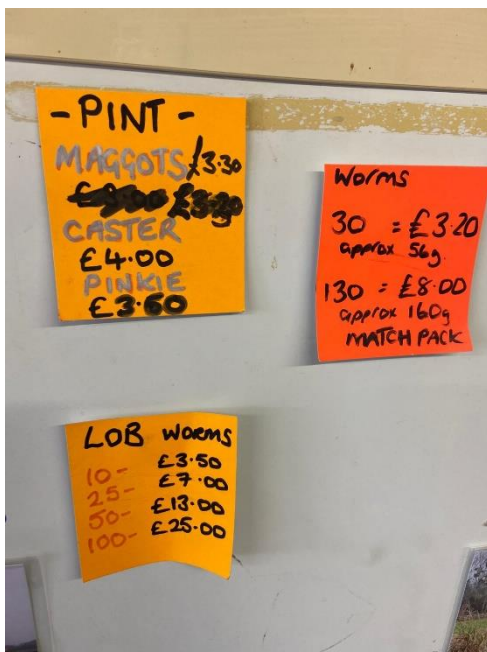 - PINT -
MAGGOTS £3.30
CASTER
£4.00
PINKIE
£3.60
Worms
30 = £3.20
approx 56g.
130 = £8.00
approx 160g
MATCH PACK
LOB WORMS
10- £3.50
25- £7.00
50- £13.00
100- £25.00